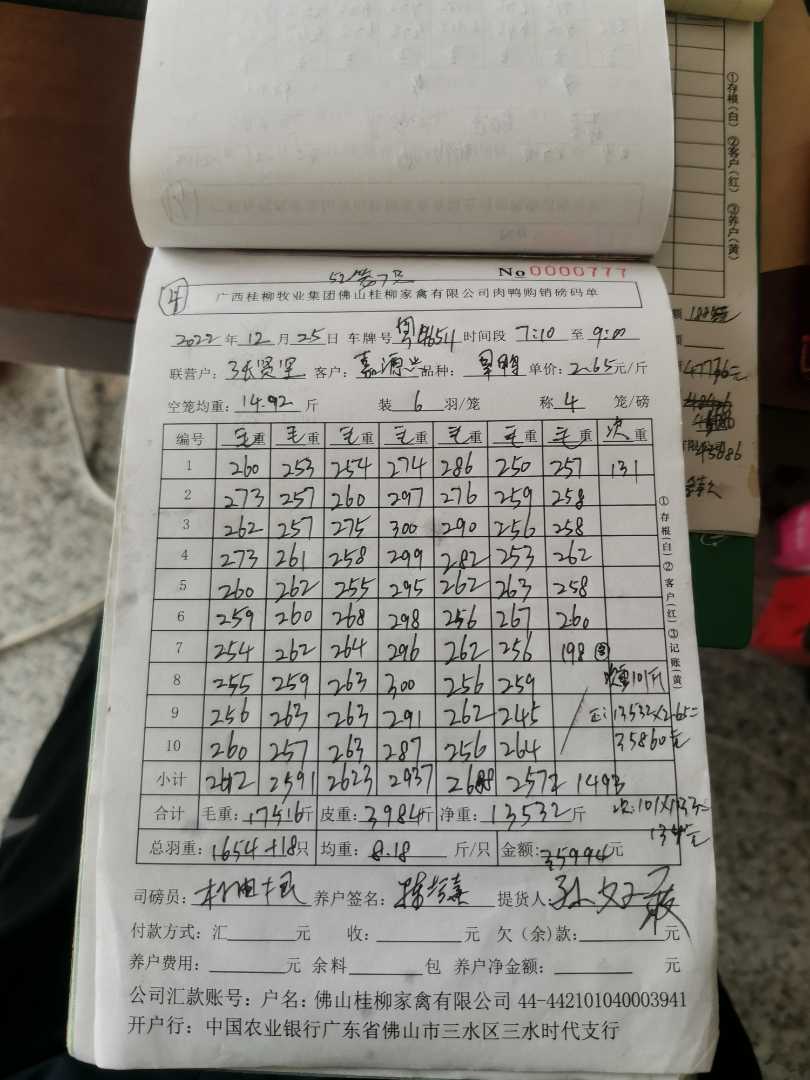 ①存根(白) ②客户(红) ③养户(黄)
No 0000777
4
广西桂柳牧业集团佛山桂柳家禽有限公司肉鸭购销磅码单
2022年12月25日 车牌号 8654 时间段 7:10 至 9:00
联营户: 张贤坚 客户: 嘉源兴 品种: 单价: 2.65元/斤
空笼均重: 14.92 斤 装 6 羽/笼 称 4 笼/磅
编号 毛重 毛重 毛重 毛重 毛重 毛重 毛重 次重
1 260 253 254 274 286 250 257 131
2 273 257 260 297 276 259 258
3 262 257 275 300 290 256 258
4 273 261 258 299 282 253 262
5 260 262 255 295 262 263 258
6 259 260 268 298 256 267 260
7 254 262 264 296 262 256 198
8 255 259 263 300 256 259 101斤
9 256 263 263 291 262 245 正:13532×2.65=
10 260 257 263 287 256 264 35860元
小计 2612 2591 2623 2937 2688 2572 1493
合计 毛重: 17516斤 皮重: 3984斤 净重: 13532斤 次:101×1.33=
134元
总羽重: 1654+18只 均重: 8.18 斤/只 金额: 35994元
①存根(白)②客户(红)③记账(黄)
司磅员: 养户签名: 提货人:
付款方式: 汇 元 收: 元 欠(余)款: 元
养户费用: 元 余料 包 养户净金额: 元
公司汇款账号: 户名: 佛山桂柳家禽有限公司 44-442101040003941
开户行: 中国农业银行广东省佛山市三水区三水时代支行